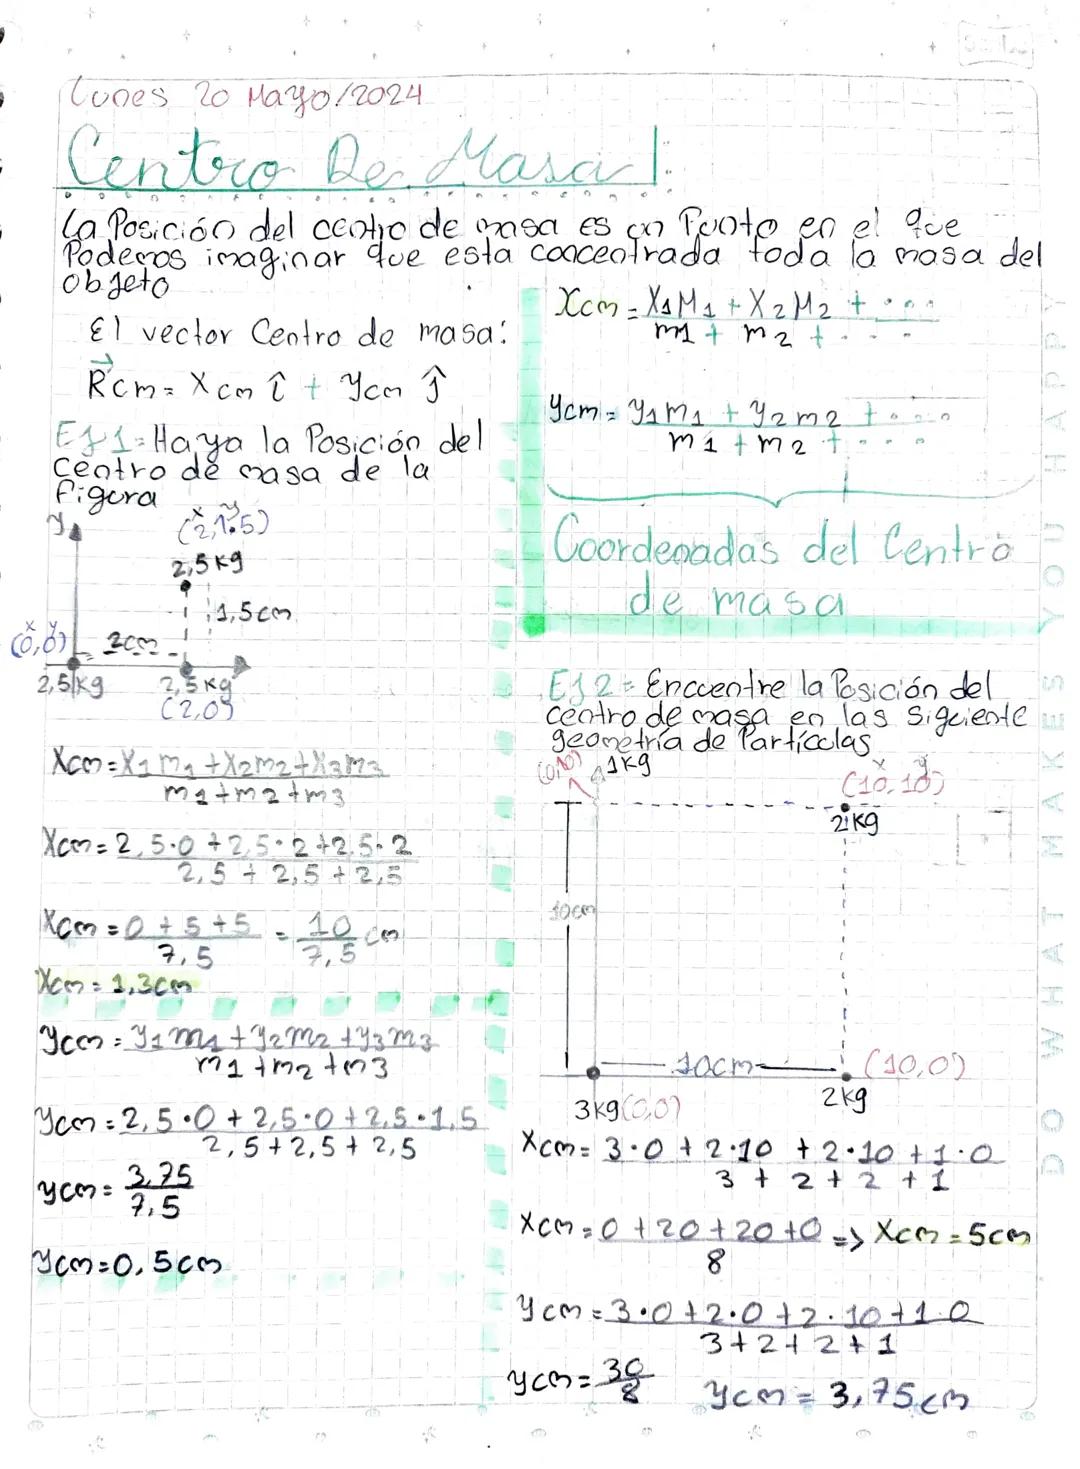 Lunes 20 Mayo/2024
Centro De Masa!:
La Posición del centro de masa es un Punto en el que
Podemos imaginar que esta concentrada toda la masa del
objeto
El vector Centro de masa:
R⃗cm = Xcm î + Ycm ĵ
Xcm = X1M1 + X2M2 + ....
m1 + m2 + ...
Ycm = Y1m1 + Y2m2 + ....
m1 + m2 + ...
Coordenadas del Centro
de masa
Ej 1 = Haya la Posición del
centro de masa de la
figura
y
x y
(2,1.5)
2,5 kg
1,5cm
x y
(0,0)
2cm
2,5 kg
2,5 kg
(2,0)
Xcm = X1m1 + X2m2 + X3m3
m1 + m2 + m3
Xcm = 2,5·0 + 2,5·2 + 2,5·2
2,5 + 2,5 + 2,5
Xcm = 0 + 5 + 5 = 10 cm
7,5 7,5
Xcm = 1,3cm
Ycm = Y1m1 + Y2m2 + Y3m3
m1 + m2 + m3
Ycm = 2,5·0 + 2,5·0 + 2,5·1,5
2,5 + 2,5 + 2,5
Ycm = 3,75
7,5
Ycm = 0,5cm
Ej 2 = Encuentre la Posición del
centro de masa en las siguiente
geometría de Partículas
(0,10)
1kg
x y
(10,10)
2kg
10cm
10cm
(10,0)
3kg (0,0)
2kg
Xcm = 3·0 + 2·10 + 2·10 + 1·0
3 + 2 + 2 + 1
Xcm = 0 + 20 + 20 + 0 => Xcm = 5cm
8
Ycm = 3·0 + 2·0 + 2·10 + 1·0
3 + 2 + 2 + 1
Ycm = 30
8
Ycm = 3,75cm
DO WHAT MAKES YOU HAPPY